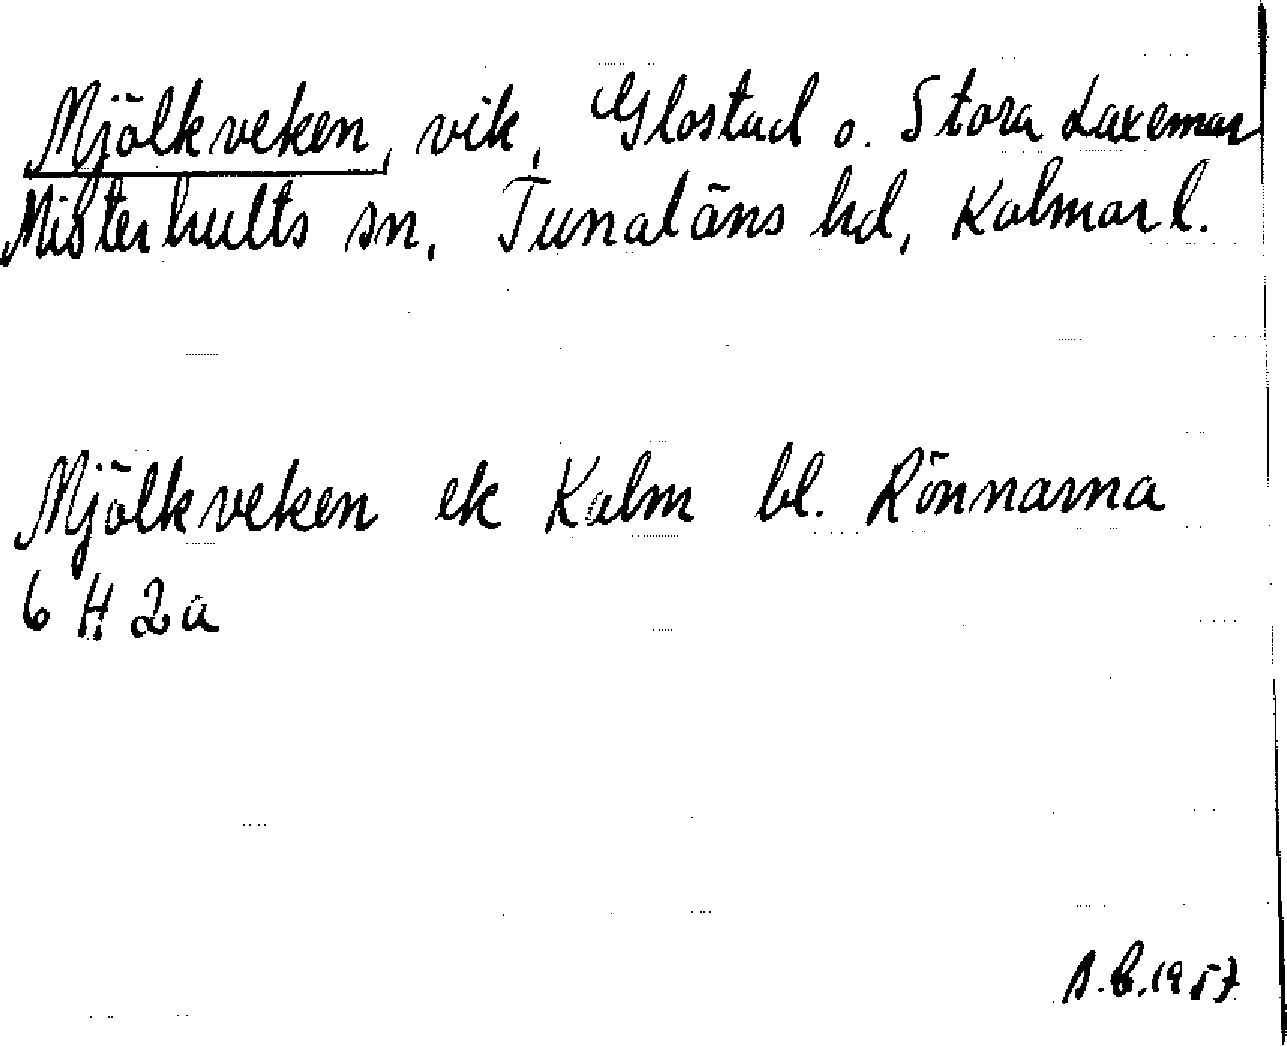 Mjölkveken, vik, Glostad o. Stora Laxemar
Misterhults sn, Tunaläns hd, Kalmar l.
Mjölkveken ek Kalm bl. Rönnarna
6 H 2a
A.B. 1957